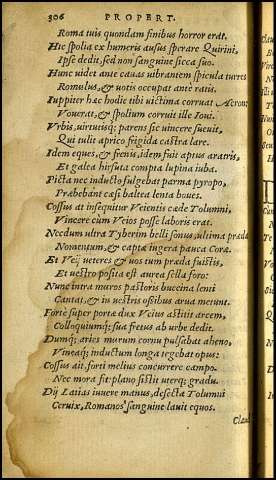 306 PROPERT.
Roma tuis quondam finibus horror erat.
Hic spolia ex humeris ausus sperare Quirini,
Ipse dedit, sed non sanguine sicca suo.
Hunc videt ante cauas uibrantem spicula turres
Romulus, & uotis occupat ante ratis.
Iuppiter hæc hodie tibi uictima corruat Acron:
Vouerat, & spolium corruit ille Ioui.
Vrbis, uirtutisq; parens sic uincere sueuit,
Qui tulit aprico frigida castra lare.
Idem eques, & frenis, idem fuit aptus aratris,
Et galea hirsuta compta lupina iuba.
Picta nec inducto fulgebat parma pyropo,
Præbebant cæsi baltea lenta boues.
Cossus at insequitur Veientis cæde Tolumni,
Vincere cùm Veios posse laboris erat.
Necdum ultra Tyberim belli sonus, ultima præda
Nomentum, & captæ iugera pauca Coræ.
Et Veij ueteres & uos tum præda fuistis,
Et uestro posita est aurea sella foro:
Nunc intra muros pastoris buccina lenti
Cantat, & in uestris ossibus arua metunt.
Fortè super portæ dux Veius astitit arcem,
Colloquiumq; sua fretus ab urbe dedit.
Dumq; aries murum cornu pulsabat aheno,
Vineaq; inductum longa tegebat opus:
Cossus ait, forti melius concurrere campo.
Nec mora fit: plano sistit uterq; gradu.
Dij Latias iuuere manus, desecta Tolumni
Ceruix, Romanos sanguine lauit equos.
Clau